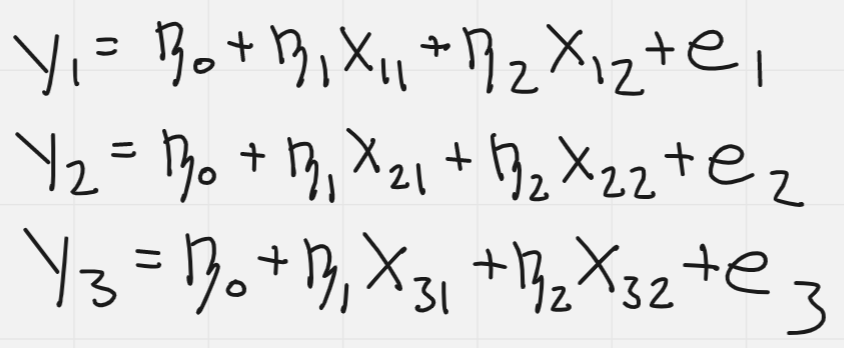 y₁ = η₀ + η₁x₁₁ + η₂x₁₂ + e₁
y₂ = η₀ + η₁x₂₁ + η₂x₂₂ + e₂
y₃ = η₀ + η₁x₃₁ + η₂x₃₂ + e₃